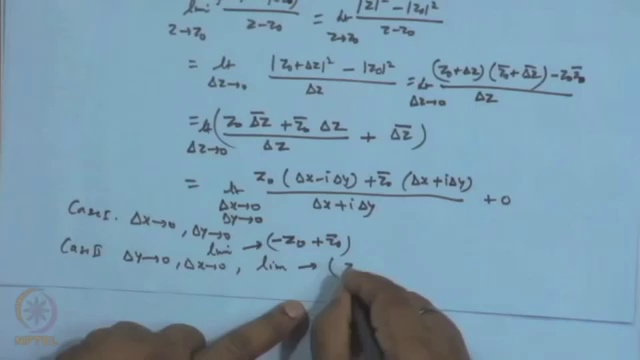 lim z→z₀ z-z₀ = lt z→z₀ |z|²-|z₀|² / z-z₀
= lt Δz→0 |z₀+Δz|² - |z₀|² / Δz = lt Δz→0 (z₀+Δz)(z̄₀+Δ̄z̄) - z₀z̄₀ / Δz
= lt Δz→0 ( z₀ Δ̄z̄ + z̄₀ Δz / Δz + Δ̄z̄ )
= lt Δx→0 Δy→0 z₀(Δx-iΔy) + z̄₀(Δx+iΔy) / Δx+iΔy + 0
Case I. Δx→0, Δy→0 lim → (-z₀ + z̄₀)
Case II Δy→0, Δx→0, lim → (z
NPTEL